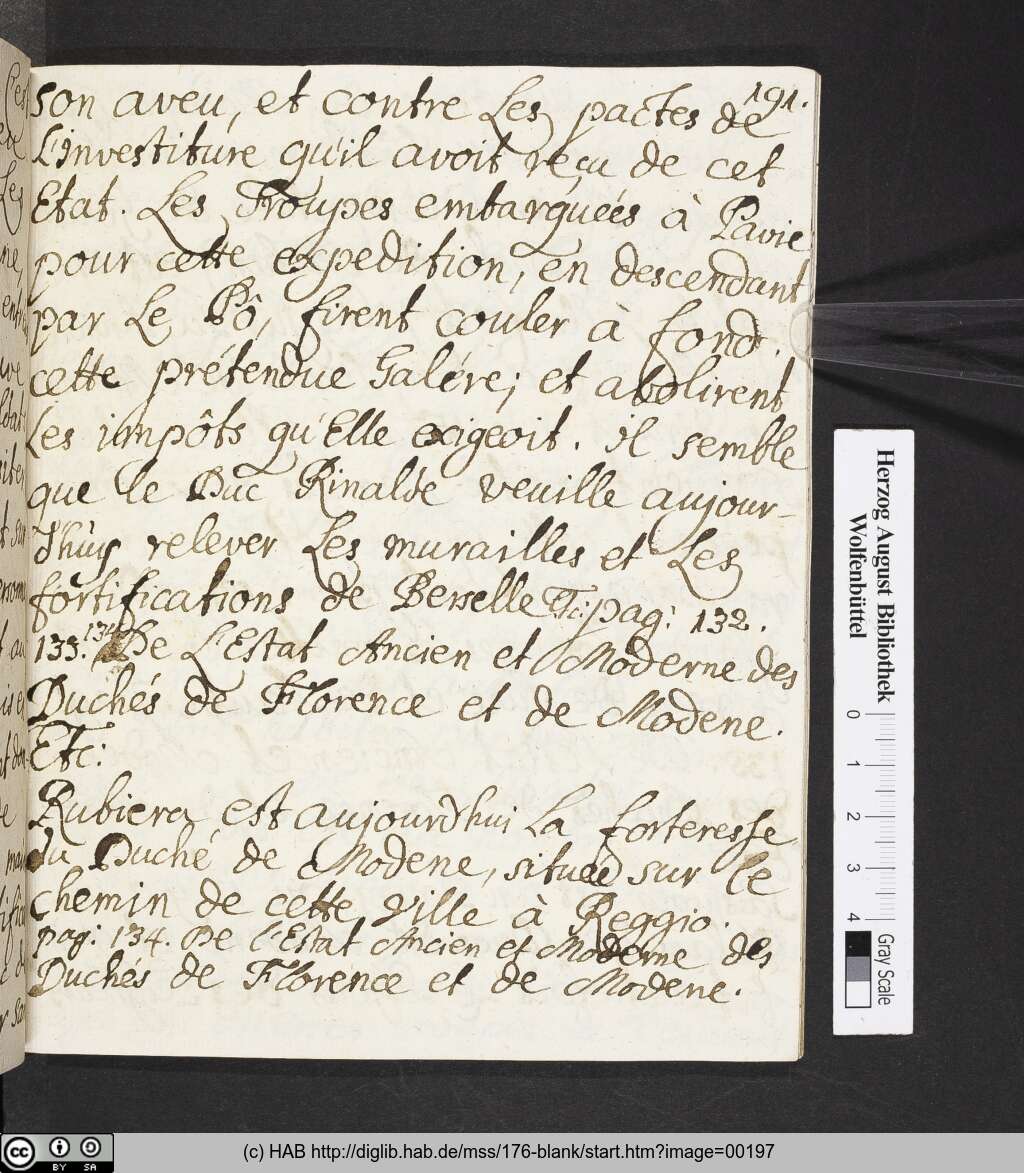 191.
son aveu, et contre Les pactes de
L'investiture qu'il avoit reçu de cet
Etat. Les Troupes embarquées à Pavie
pour cette expedition, en descendant
par Le Pô, firent couler à fond
cette prétendue Galére; et abolirent
Les impôts qu'Elle exigeoit. il semble
que le Duc Rinalde veuille aujour-
d'huy relever Les murailles et Les
fortifications de Berselle Etc: pag: 132.
133. 134. De L'Estat Ancien et Moderne des
Duchés de Florence et de Modene.
Etc:
Rubiera est aujourdhui La forteresse
du Duché de Modene, située sur le
chemin de cette ville à Reggio.
pag: 134. De L'Estat Ancien et Moderne des
Duchés de Florence et de Modene.
Herzog August Bibliothek
Wolfenbüttel
0 1 2 3 4
Gray Scale
cc BY SA
(c) HAB http://diglib.hab.de/mss/176-blank/start.htm?image=00197